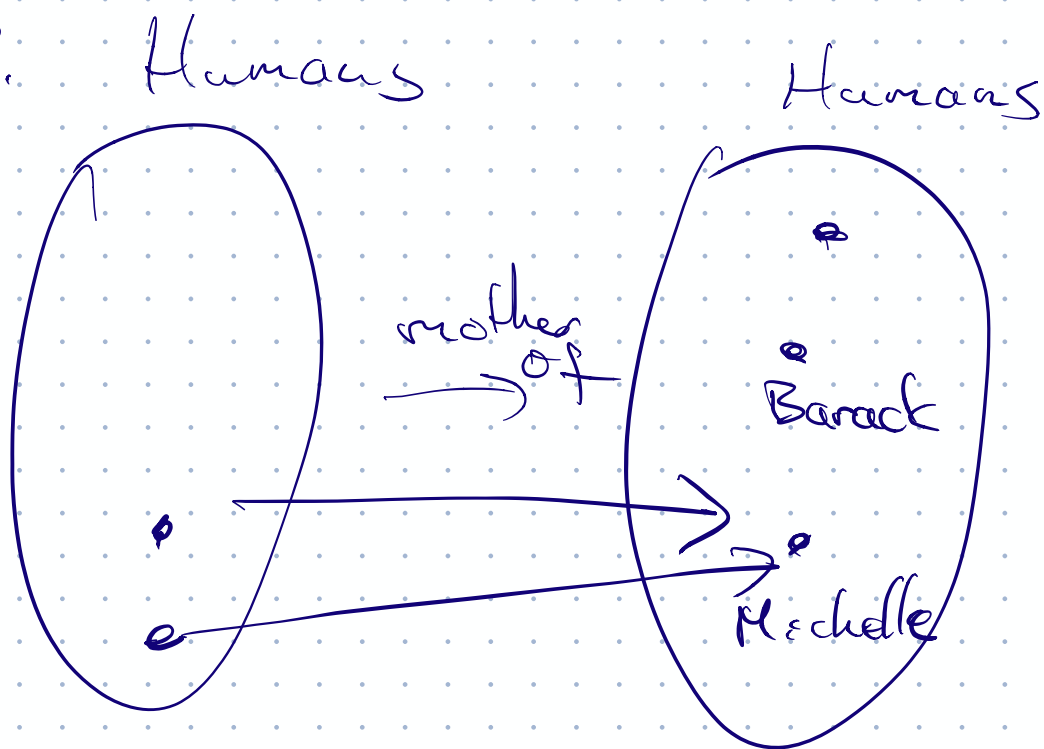 Humans
Humans
mother
of
Barack
Michelle